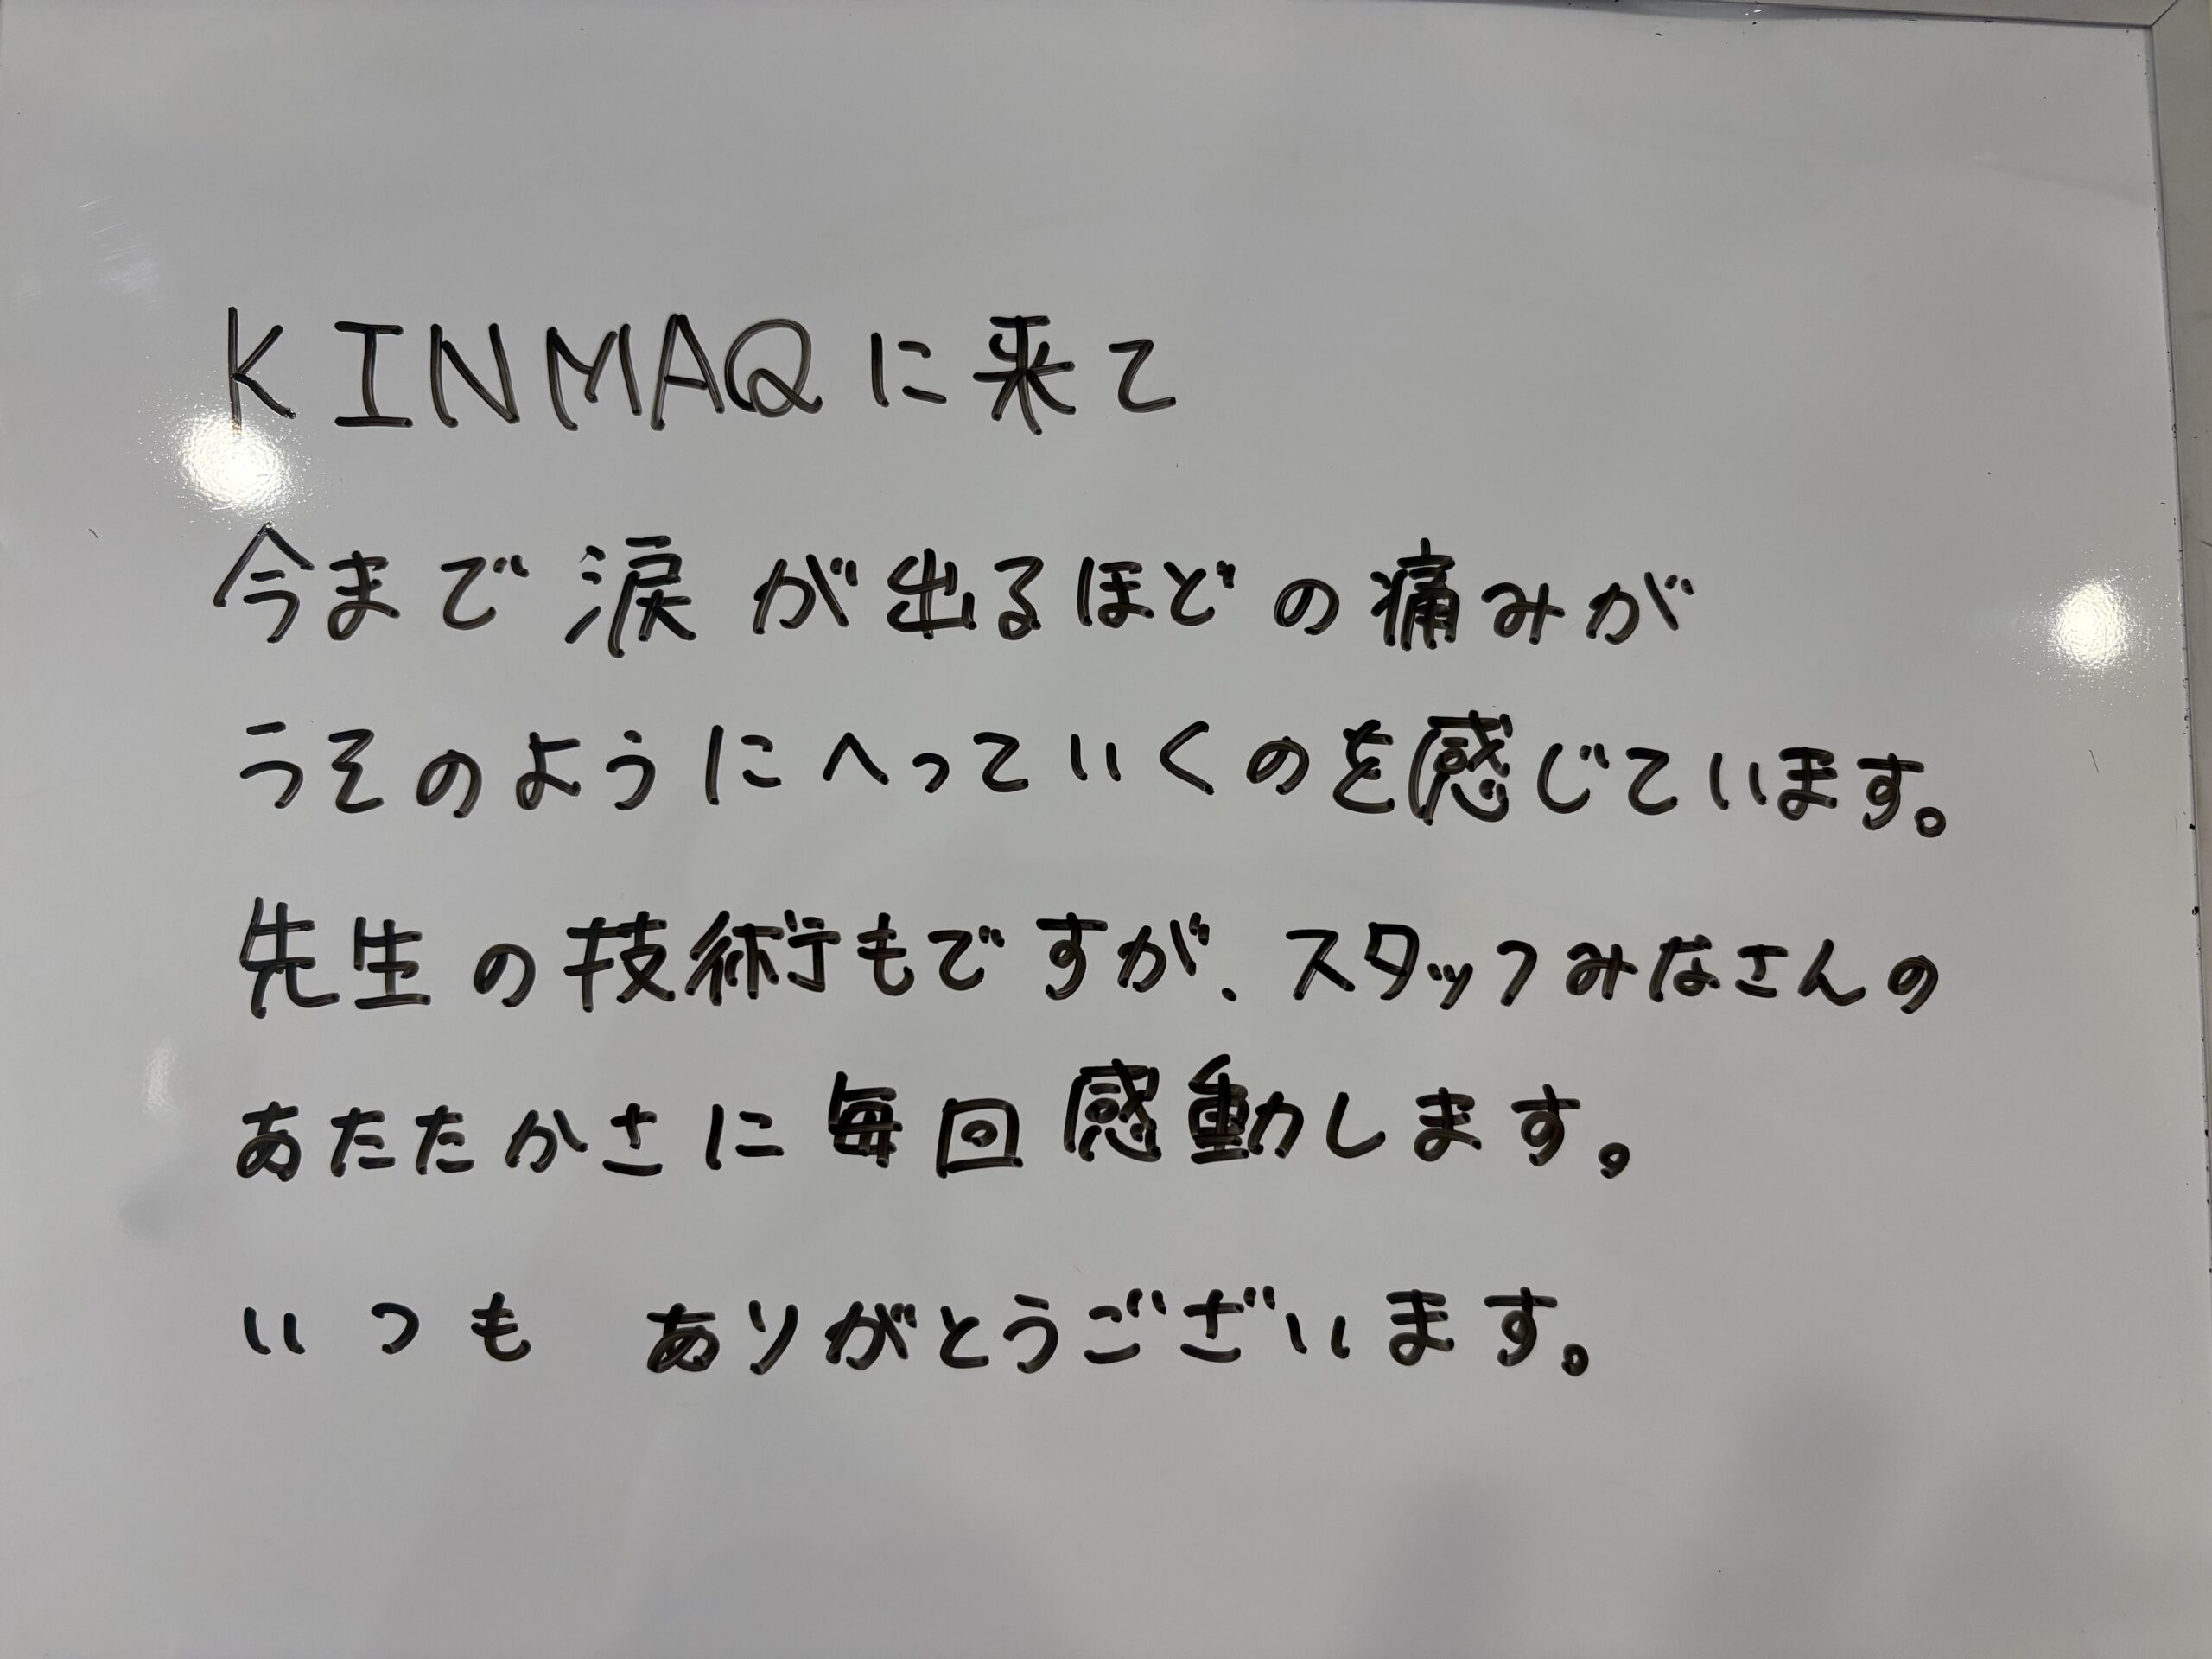 KINMAQに来て
今まで涙が出るほどの痛みが
うそのようにへっていくのを感じています。
先生の技術もですが、スタッフみなさんの
あたたかさに毎回感動します。
いつも ありがとうございます。